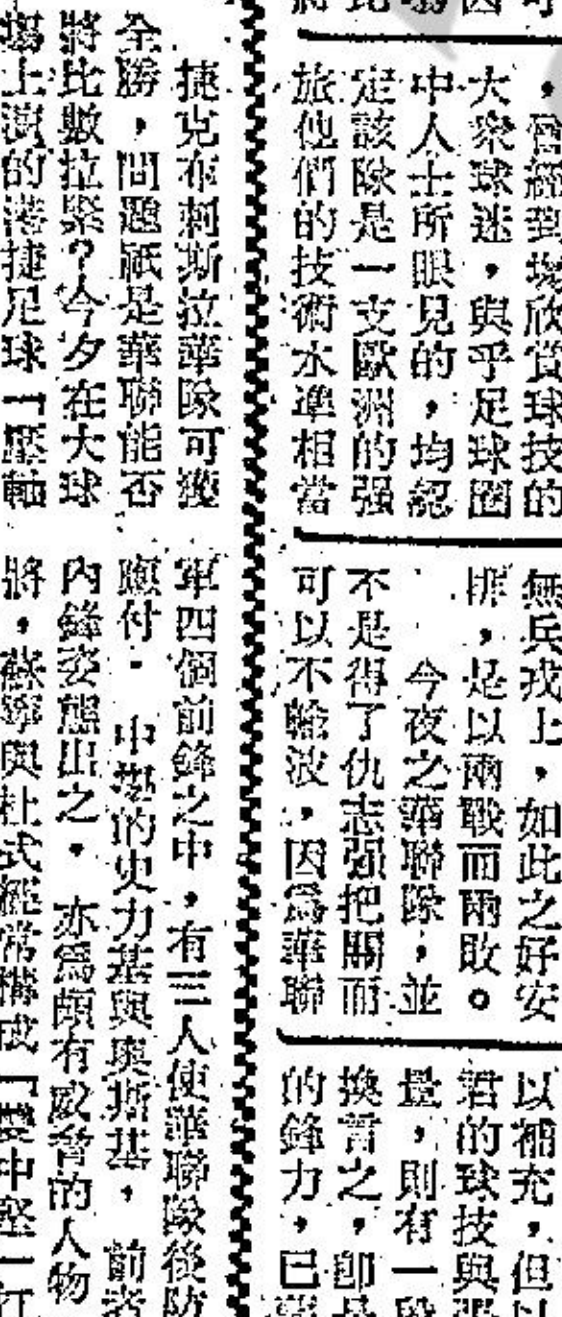 ，曾經到場欣賞球技的
大衆球迷，與乎足球圈
中人士所眼見的，均認
定該隊是一支歐洲的强
旅他們的技術水準相當
無兵戎上，如此之好安
排，是以兩戰而兩敗。
今夜之華聯隊，並
不是得了仇志强把關而
可以不輸波，因爲華聯
以補充，但以
君的球技與
量，則有一段
換言之，卽是
的鋒力，已
捷克布刺斯拉華隊可獲
全勝，問題祇是華聯能否
將比數拉緊？今夕在大球
塲上演的港捷足球一壓軸
軍四個前鋒之中，有三人使華聯隊後防
應付．中塲的史力基與奥斯基，前者
內鋒姿態出之．亦爲頗有威脅的人物
將，蘇寧與杜式經常構成「雙中堅一打